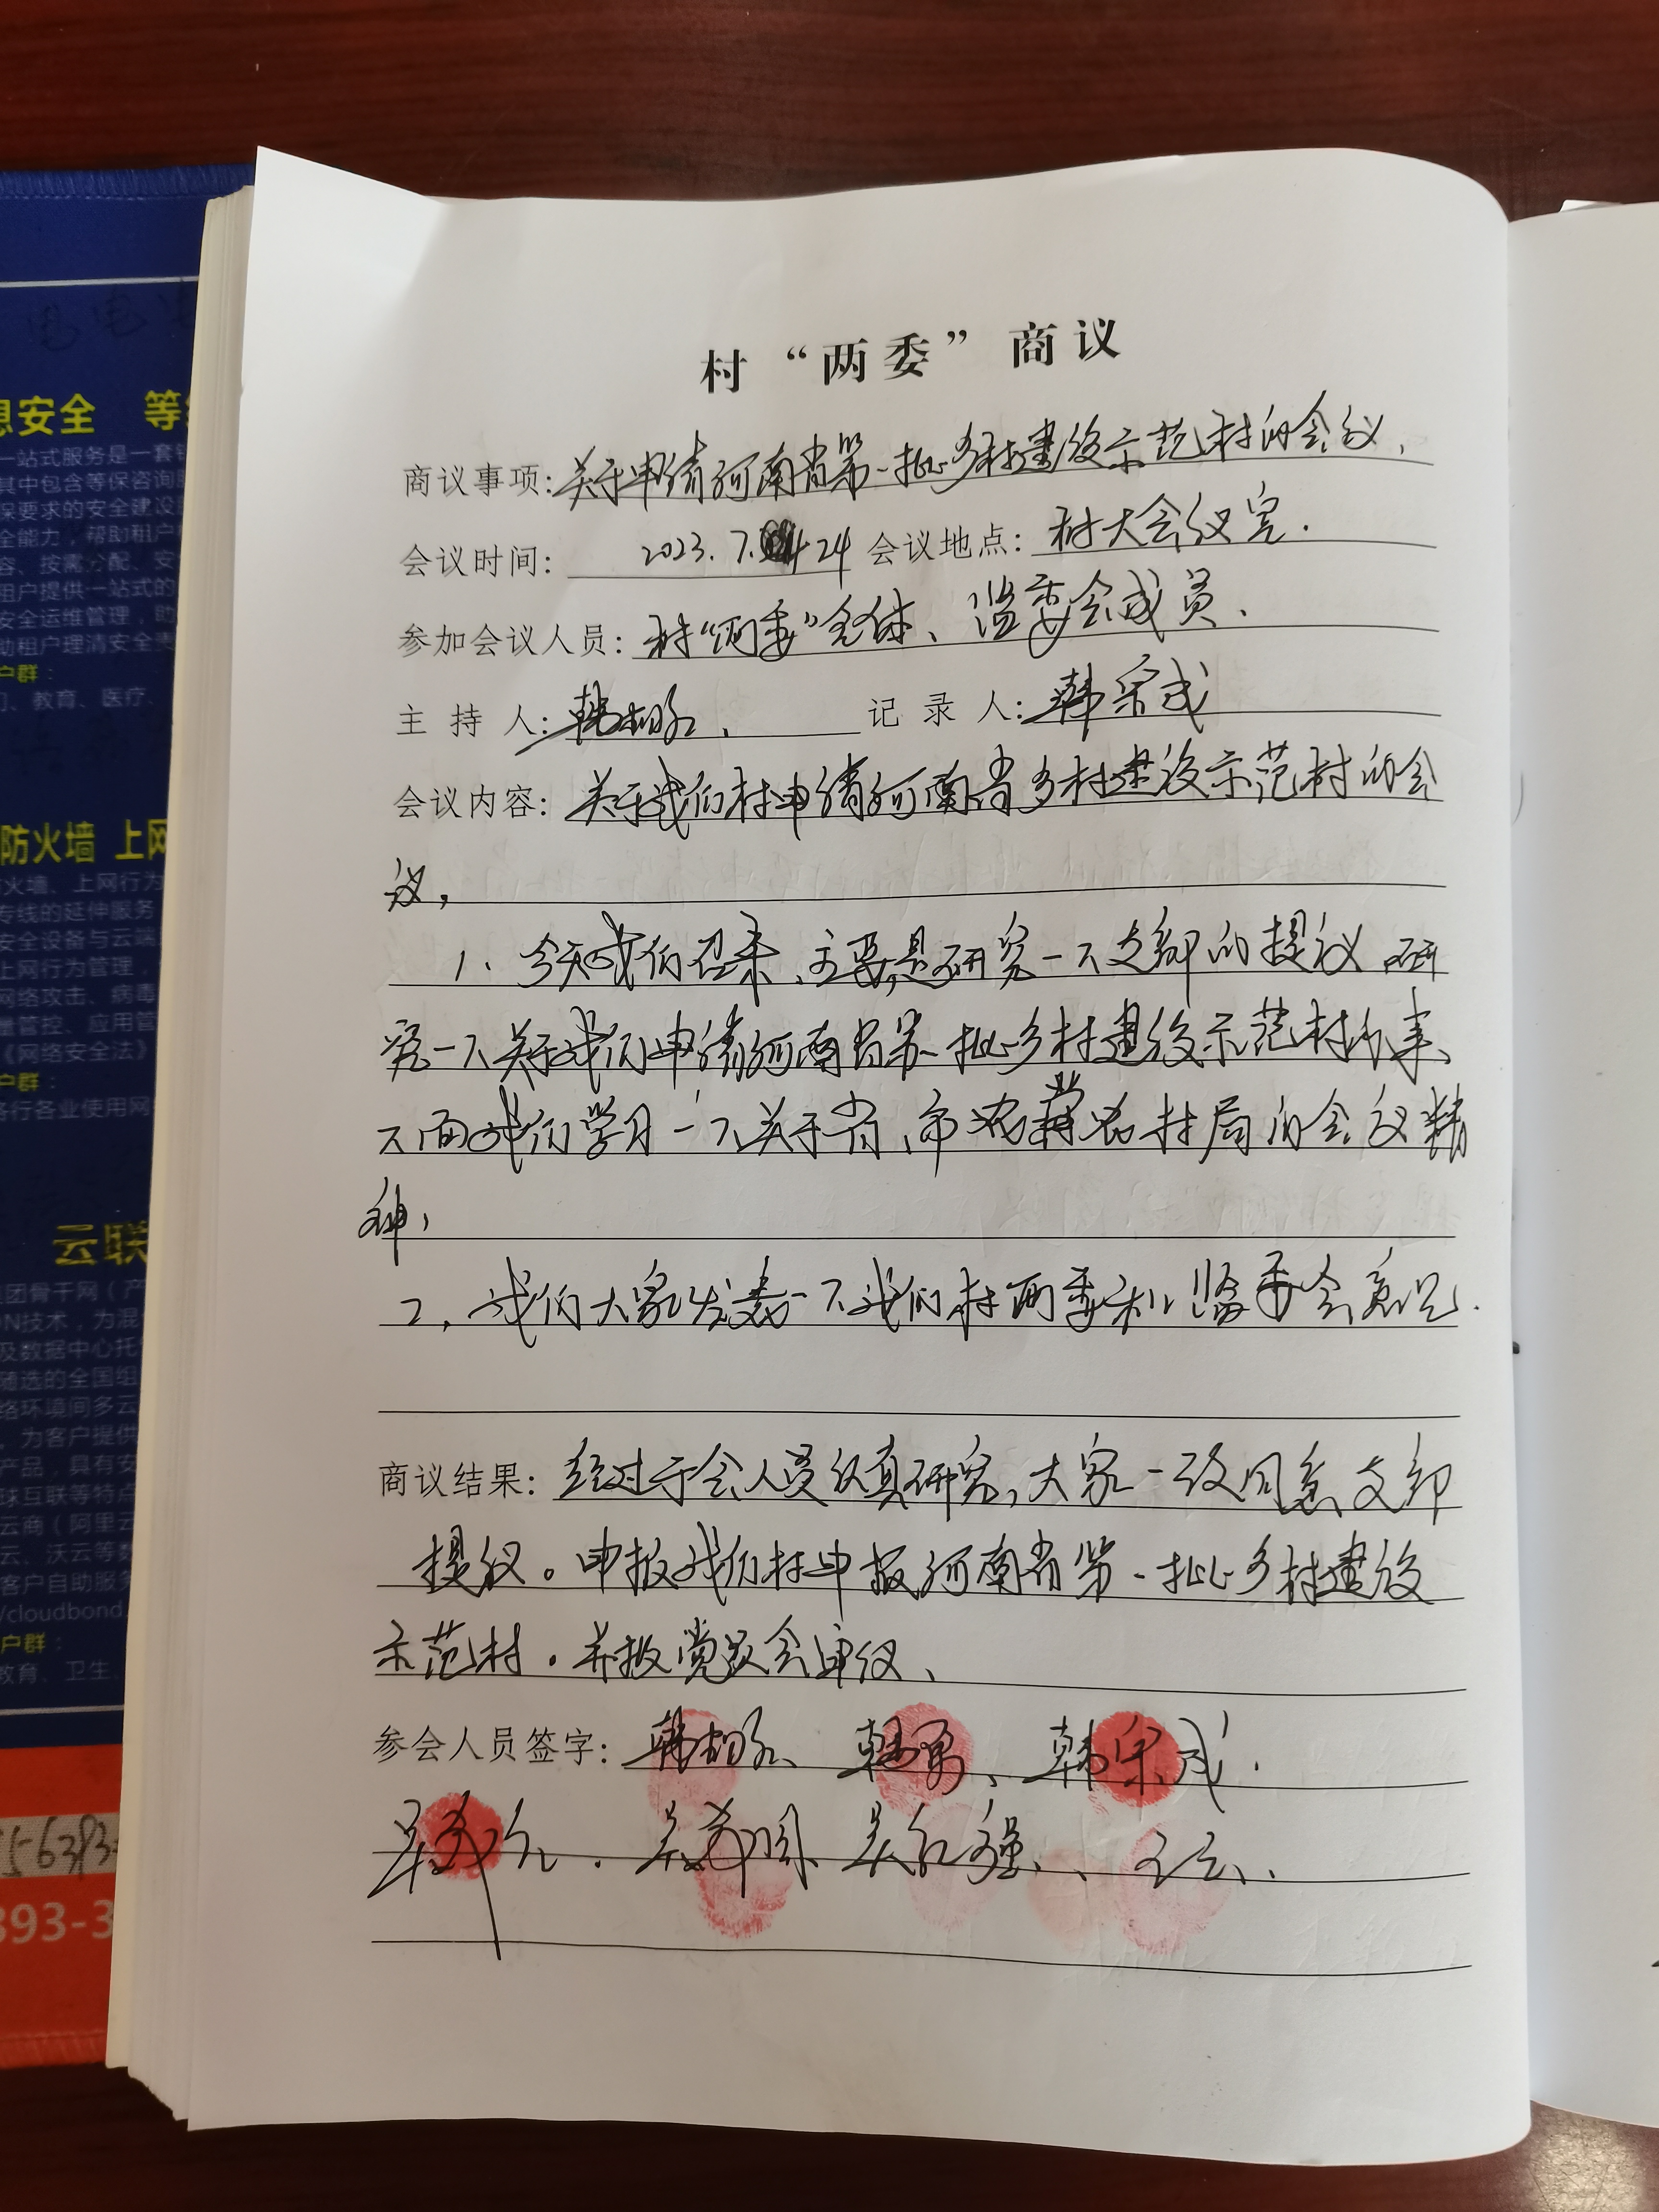 村“两委”商议
商议事项：关于申请河南省第一批乡村建设示范村的会议、
会议时间：2023.7.24 会议地点：村大会议室.
参加会议人员：村“两委”全体、监委会成员、
主持人：韩 、 记录人：韩宗成
会议内容：关于我们村申请河南省乡村建设示范村的会
议，
1、今天我们召来、主要是研究一下支部的提议 研
究一下关于我们申请河南省第一批乡村建设示范村的事、
下面我们学习一下关于省、市农业农村局的会议精
神，
2、我们大家发表一下我们村两委和监委会意见.
商议结果：经过于会人员认真研究，大家一致同意支部
提议。申报我们村申报河南省第一批乡村建设
示范村。并报党员会审议、
参会人员签字：韩 、韩 、韩宗成.
吴 . 吴 吴红强、王云、
息安全
一站式服务是一套
其中包含等保咨询
保要求的安全建设
全能力，帮助租户
容、按需分配、安
租户提供一站式的
安全运维管理，助
助租户理清安全责
户群：
、教育、医疗、
防火墙 上网
火墙、上网行为
专线的延伸服务
安全设备与云端
上网行为管理，
网络攻击、病毒
量管控、应用管
《网络安全法》
户群：
各行各业使用网
云联
团骨干网（产
DN技术，为混
及数据中心托
随选的全国组
络环境间多云
，为客户提供
产品，具有安
球互联等特点
云商（阿里云
云、沃云等
客户自助服务
/cloudbond.
户群：
教育、卫生、
893-3